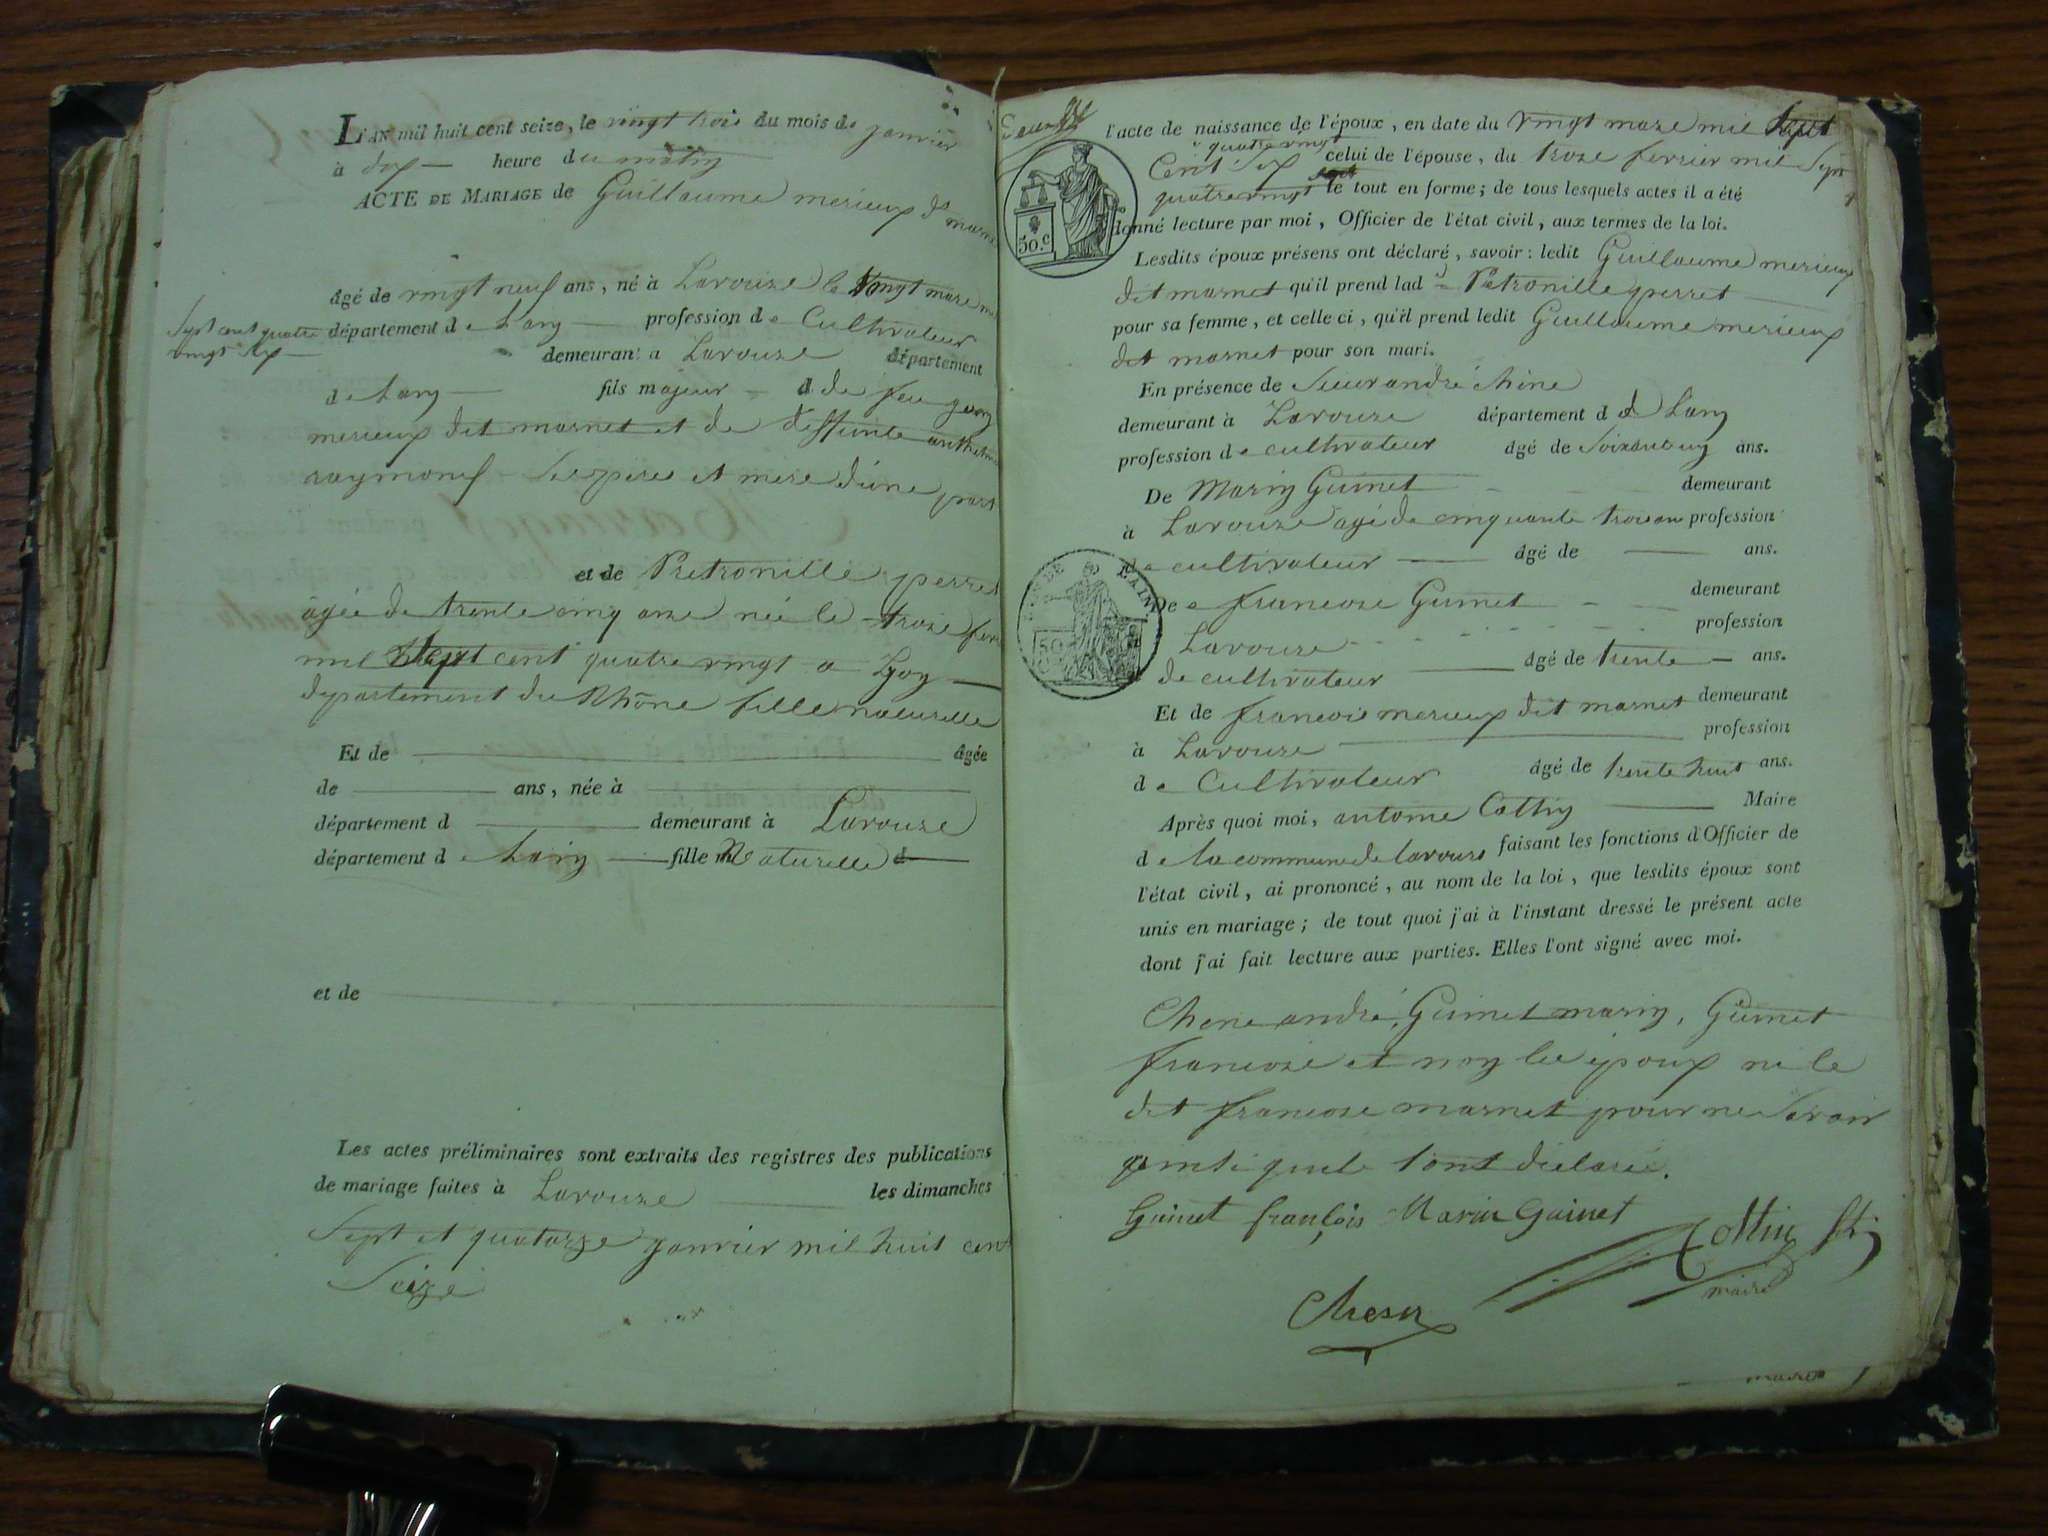 L'AN mil huit cent seize, le vingt trois du mois de janvier
à dix heure du matin
ACTE DE MARIAGE de Guillaume merieux dt marnet
âgé de vingt neuf ans, né à Lavouze le vingt mars mil
Sept cent quatre
vingt six
département de Lain profession de Cultivateur
demeurant a Lavouze département
de Lain fils majeur d de feu
merieux dit marnet et de deffunte
raymond Ses pere et mere d'une part
et de Petronille perret
âgée de trente cinq ans née le troze fev
mil Sept cent quatre vingt a Lyon
departement du Rhône fille naturelle
Et de âgée
de ans, née à
département d demeurant à Lavouze
département de Lain fille Naturelle d
et de
Les actes préliminaires sont extraits des registres des publications
de mariage faites à Lavouze les dimanches
Sept et quatorze janvier mil huit cent
Seize
l'acte de naissance de l'époux, en date du vingt mars mil Sept
quatre vingt
Cent Six celui de l'épouse, du troze fevrier mil Sept
quatre vingt le tout en forme; de tous lesquels actes il a été
donné lecture par moi, Officier de l'état civil, aux termes de la loi.
50.c
Lesdits époux présens ont déclaré, savoir: ledit Guillaume merieux
dit marnet qu'il prend lad Petronille perret
pour sa femme, et celle ci, qu'il prend ledit Guillaume merieux
dit marnet pour son mari.
En présence de Sieur andré chêne
demeurant à Lavouze département d de Lain
profession de cultivateur âgé de Soixante un ans.
De Marin Guinet demeurant
à Lavouze agé de cinquante trois ans profession
de cultivateur âgé de ans.
De francois Guinet demeurant
Lavouze profession
de cultivateur âgé de trente ans.
50
Et de francois merieux dit marnet demeurant
à Lavouze profession
de Cultivateur âgé de trente huit ans.
Après quoi moi, antoine Cottin Maire
de la commune de lavours faisant les fonctions d'Officier de
l'état civil, ai prononcé, au nom de la loi, que lesdits époux sont
unis en mariage; de tout quoi j'ai à l'instant dressé le présent acte
dont j'ai fait lecture aux parties. Elles l'ont signé avec moi.
Chene andré, Guinet marin, Guinet
francois et non les époux ni le
dit francois marnet pour ne Savoir
ainsi quils l'ont déclaré.
Guinet françois Marin Guinet
Cottin
maire
Chesne
maire